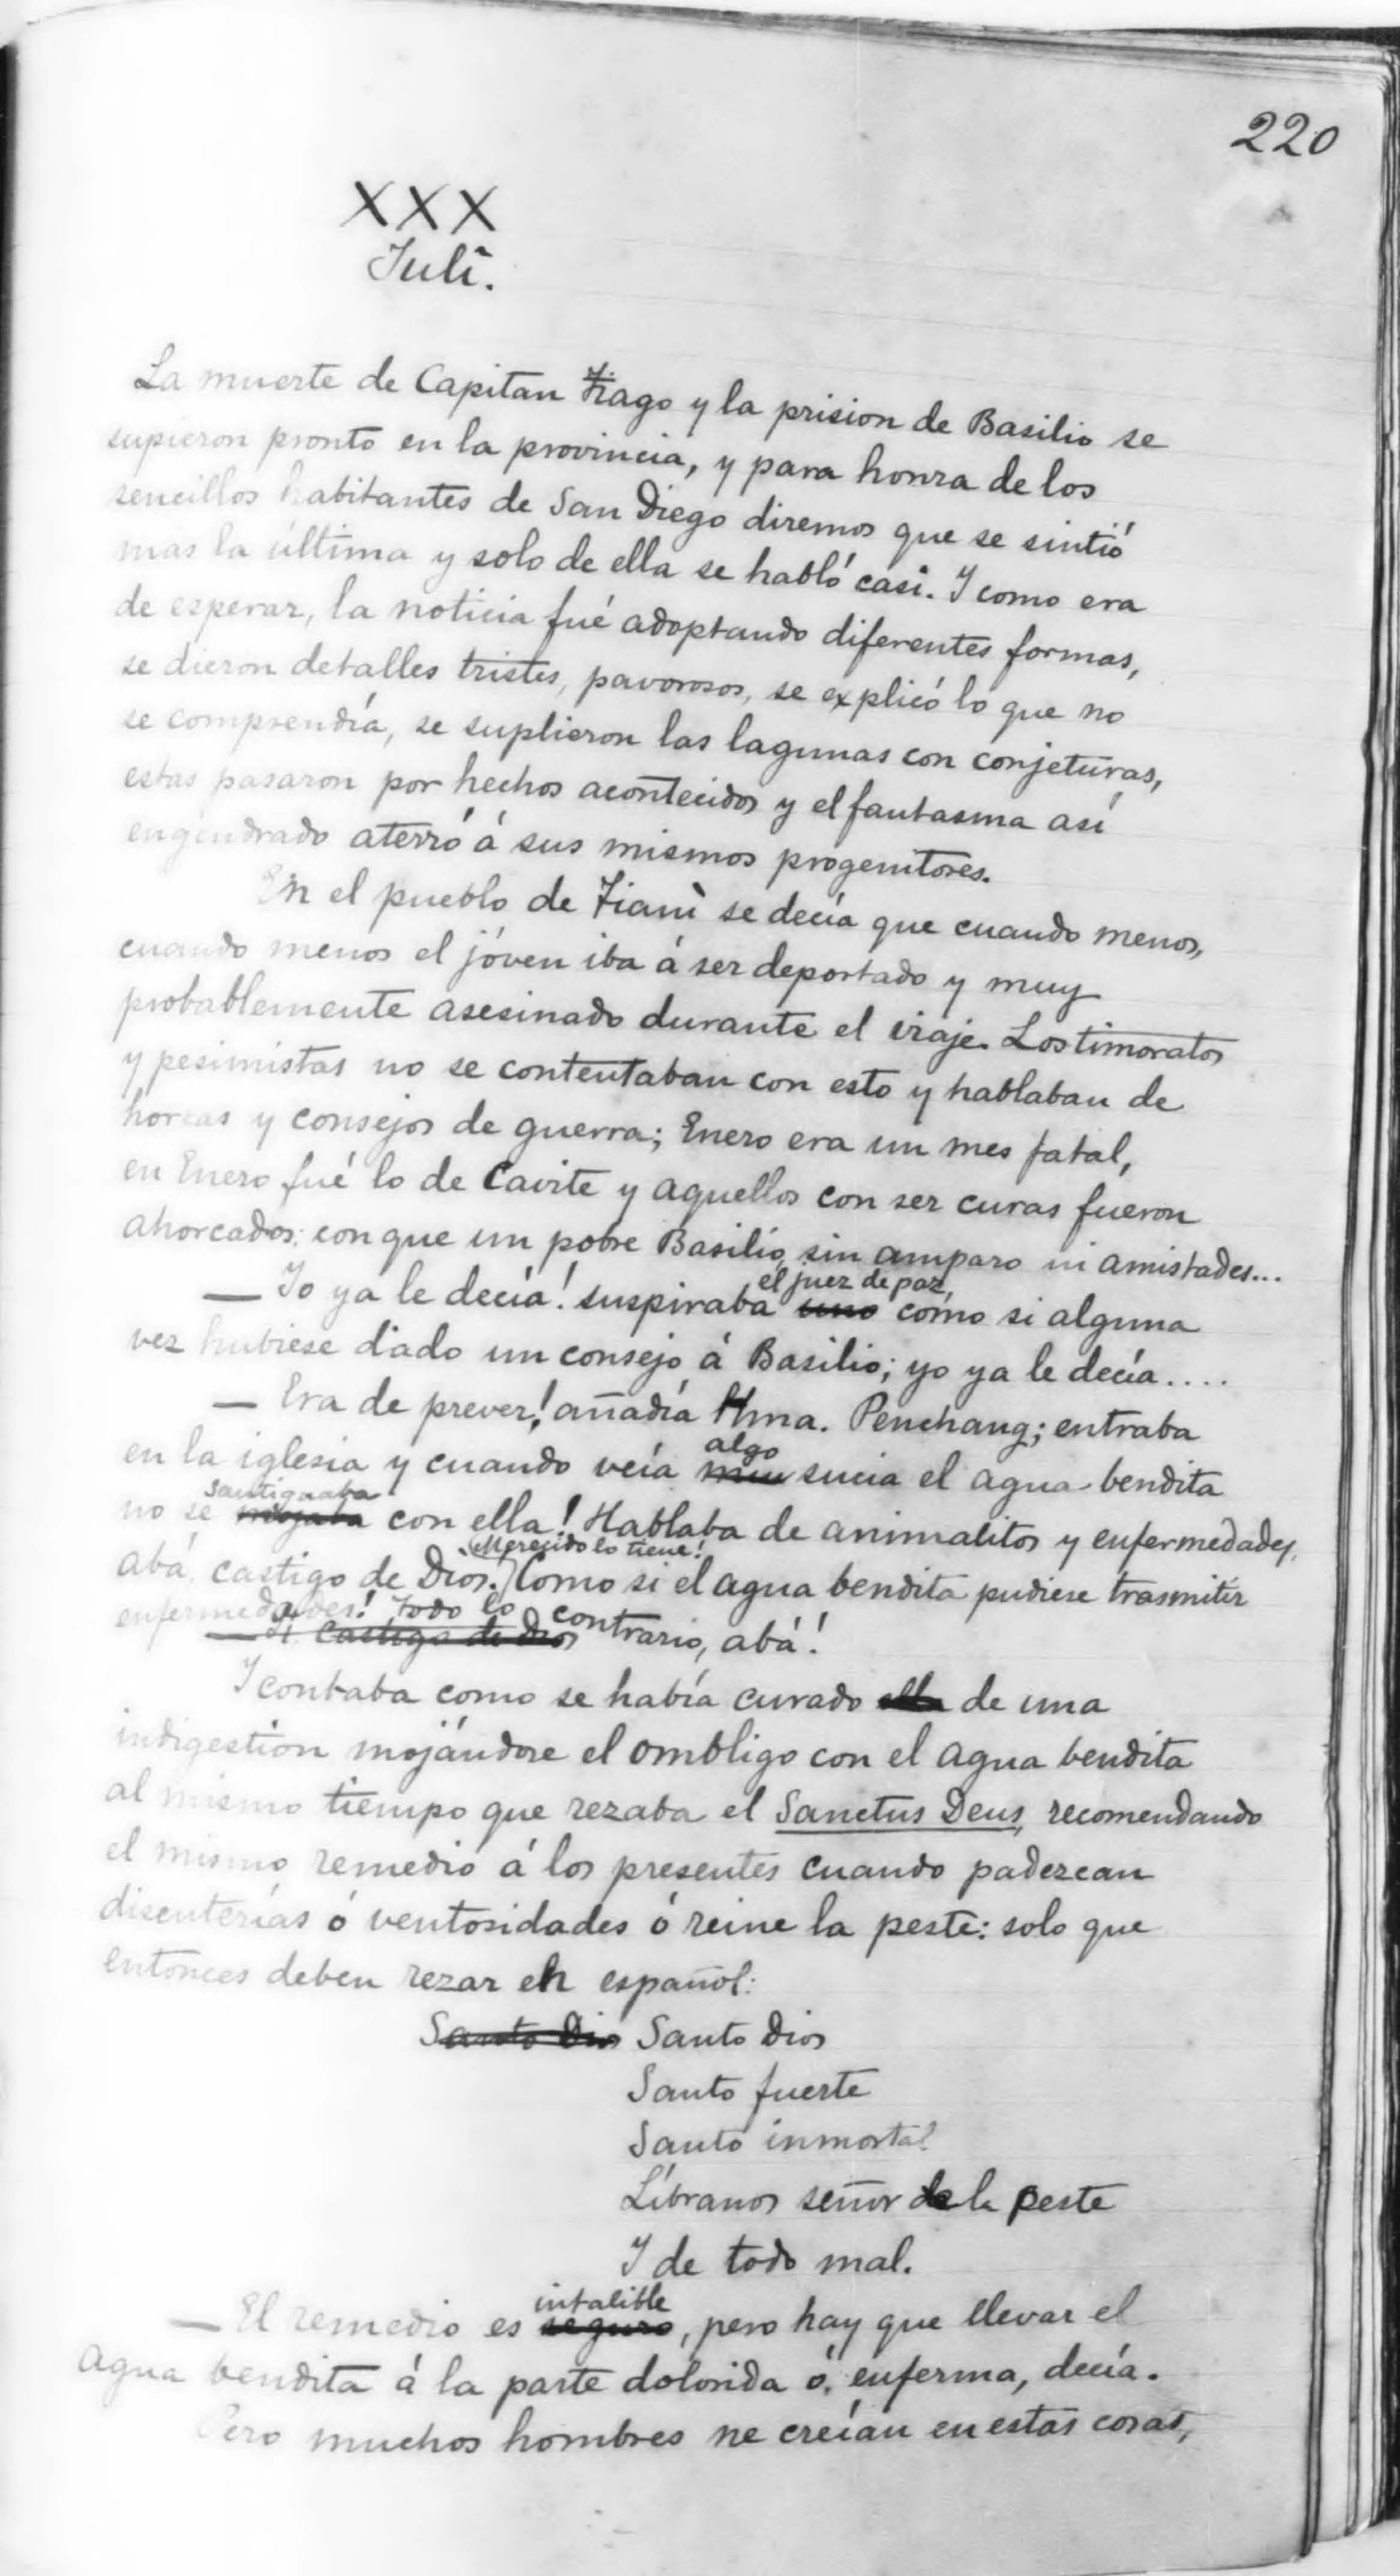 220
XXX
Juli.
La muerte de Capitan Tiago y la prision de Basilio se
supieron pronto en la provincia, y para honra de los
sencillos habitantes de San Diego diremos que se sintió
mas la última y solo de ella se habló casi. Y como era
de esperar, la noticia fué adoptando diferentes formas,
se dieron detalles tristes, pavorosos, se explicó lo que no
se comprendía, se suplieron las lagunas con conjeturas,
estas pasaron por hechos acontecidos y el fantasma así
engendrado aterró á sus mismos progenitores.
En el pueblo de Tiani se decía que cuando menos,
cuando menos el jóven iba á ser deportado y muy
probablemente asesinado durante el viaje. Los timoratos
y pesimistas no se contentaban con esto y hablaban de
horcas y consejos de guerra; Enero era un mes fatal,
en Enero fué lo de Cavite y aquellos con ser curas fueron
ahorcados; conque un pobre Basilio sin amparo ni amistades...
el juez de paz,
— Yo ya le decía! suspiraba uno como si alguna
vez hubiese dado un consejo á Basilio; yo ya le decía....
— Era de prever! añadía Hma. Penchang; entraba
algo
en la iglesia y cuando veía sucia el agua bendita
santiguaba
no se mojaba con ella! Hablaba de animalitos y enfermedades,
Merecido lo tiene!
abá, castigo de Dios. Como si el agua bendita pudiese trasmitir
enfermedades! Todo lo contrario, abá!
— castigo de Dios
Y contaba como se había curado ella de una
indigestión mojándose el ombligo con el agua bendita
al mismo tiempo que rezaba el Sanctus Deus, recomendando
el mismo remedio á los presentes cuando padezcan
disenterías ó ventosidades ó reine la peste: solo que
entonces deben rezar en español:
Santo Dios Santo Dios
Santo fuerte
Santo inmortal
Líbranos señor de la peste
Y de todo mal.
infalible
— El remedio es seguro, pero hay que llevar el
agua bendita á la parte dolorida ó enferma, decía.
Pero muchos hombres no creían en estas cosas,